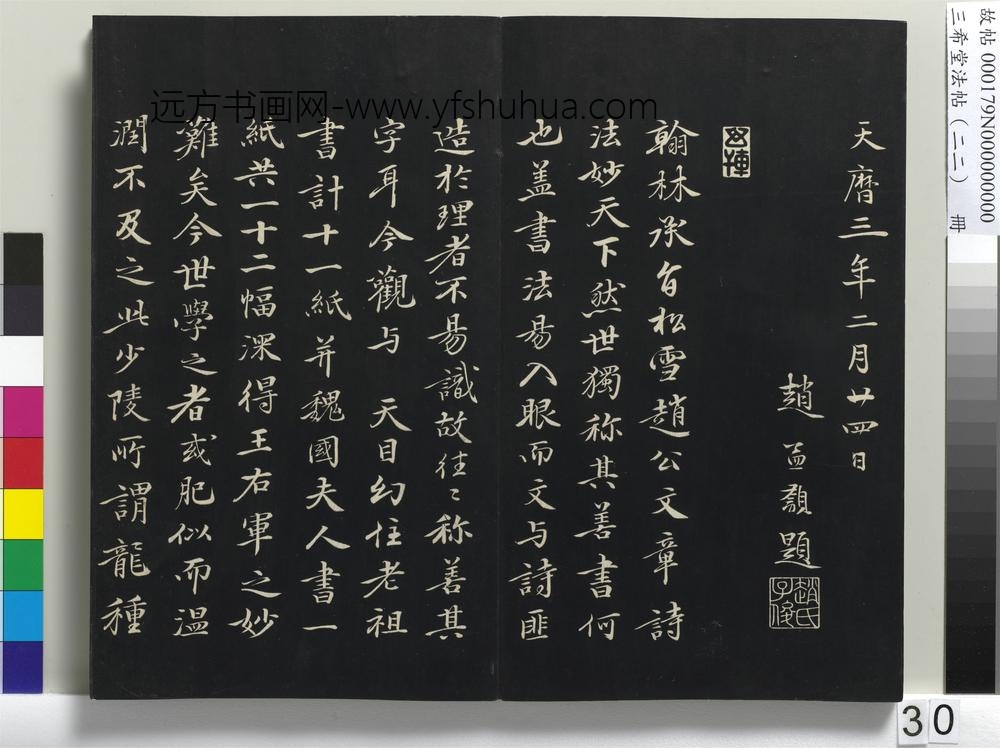 天曆三年二月廿四日
趙孟籲題
趙氏子俊
翰林承旨松雪趙公文章詩
法妙天下然世獨称其善書何
也盖書法易入眼而文与詩匪
造於理者不易識故往〻称善其
字耳今觀与 天目幻住老祖
書計十一紙并魏國夫人書一
紙共一十二幅深得王右軍之妙
難矣今世學之者或肥似而温
潤不及之此少陵所謂龍種
远方书画网-www.yfshuhua.com
故帖 000179N000000000
三希堂法帖（二二） 冊
30